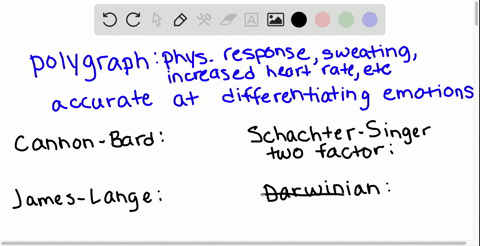 polygraph: phys. response, sweating,
increased heart rate, etc
accurate at differentiating emotions
Cannon-Bard:
Schachter-Singer
two factor:
James-Lange:
Darwinian: